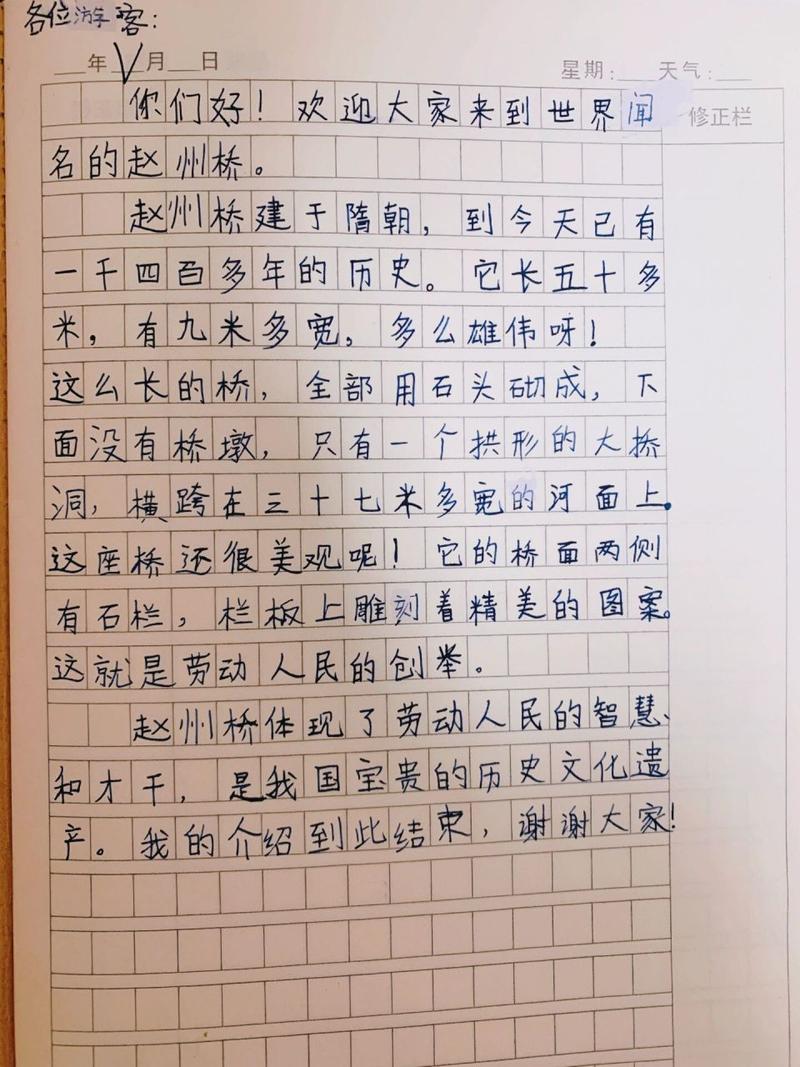 各位游客：
___年___月___日 星期：___ 天气：___
修正栏
你们好！欢迎大家来到世界闻
名的赵州桥。
赵州桥建于隋朝，到今天已有
一千四百多年的历史。它长五十多
米，有九米多宽，多么雄伟呀！
这么长的桥，全部用石头砌成，下
面没有桥墩，只有一个拱形的大桥
洞，横跨在三十七米多宽的河面上。
这座桥还很美观呢！它的桥面两侧
有石栏，栏板上雕刻着精美的图案。
这就是劳动人民的创举。
赵州桥体现了劳动人民的智慧、
和才干，是我国宝贵的历史文化遗
产。我的介绍到此结束，谢谢大家！